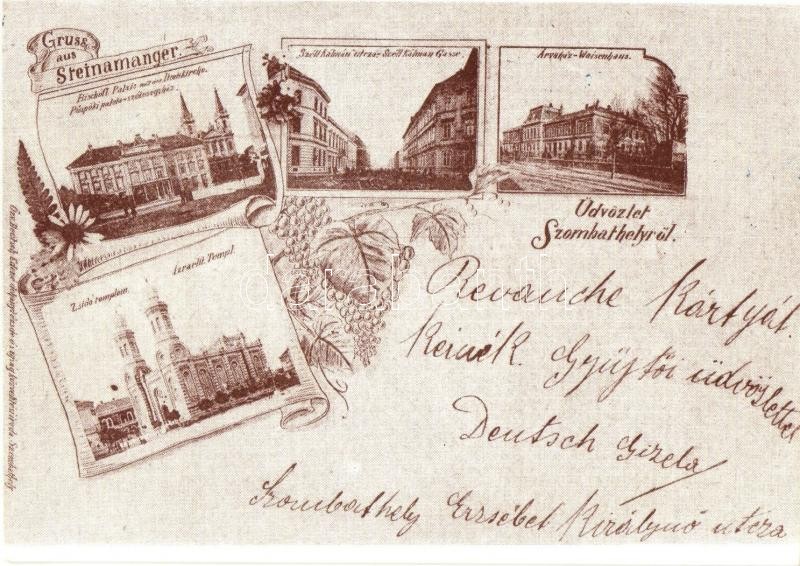 Gruss
aus
Steinamanger.
Bischöfl. Palais mit der Domkirche.
Püspöki palota-székesegyház.
Széll Kálmán utcza-Széll Kálmán Gasse.
Arvaház-Waisenhaus.
Üdvözlet
Szombathelyről.
Zsidó templom.
Izraelit. Templ.
Revanche Kártyát.
Kérnék. Gyűjtői üdvözlettel
Deutsch Gizela
Szombathely Erzsébet Királynő utcza